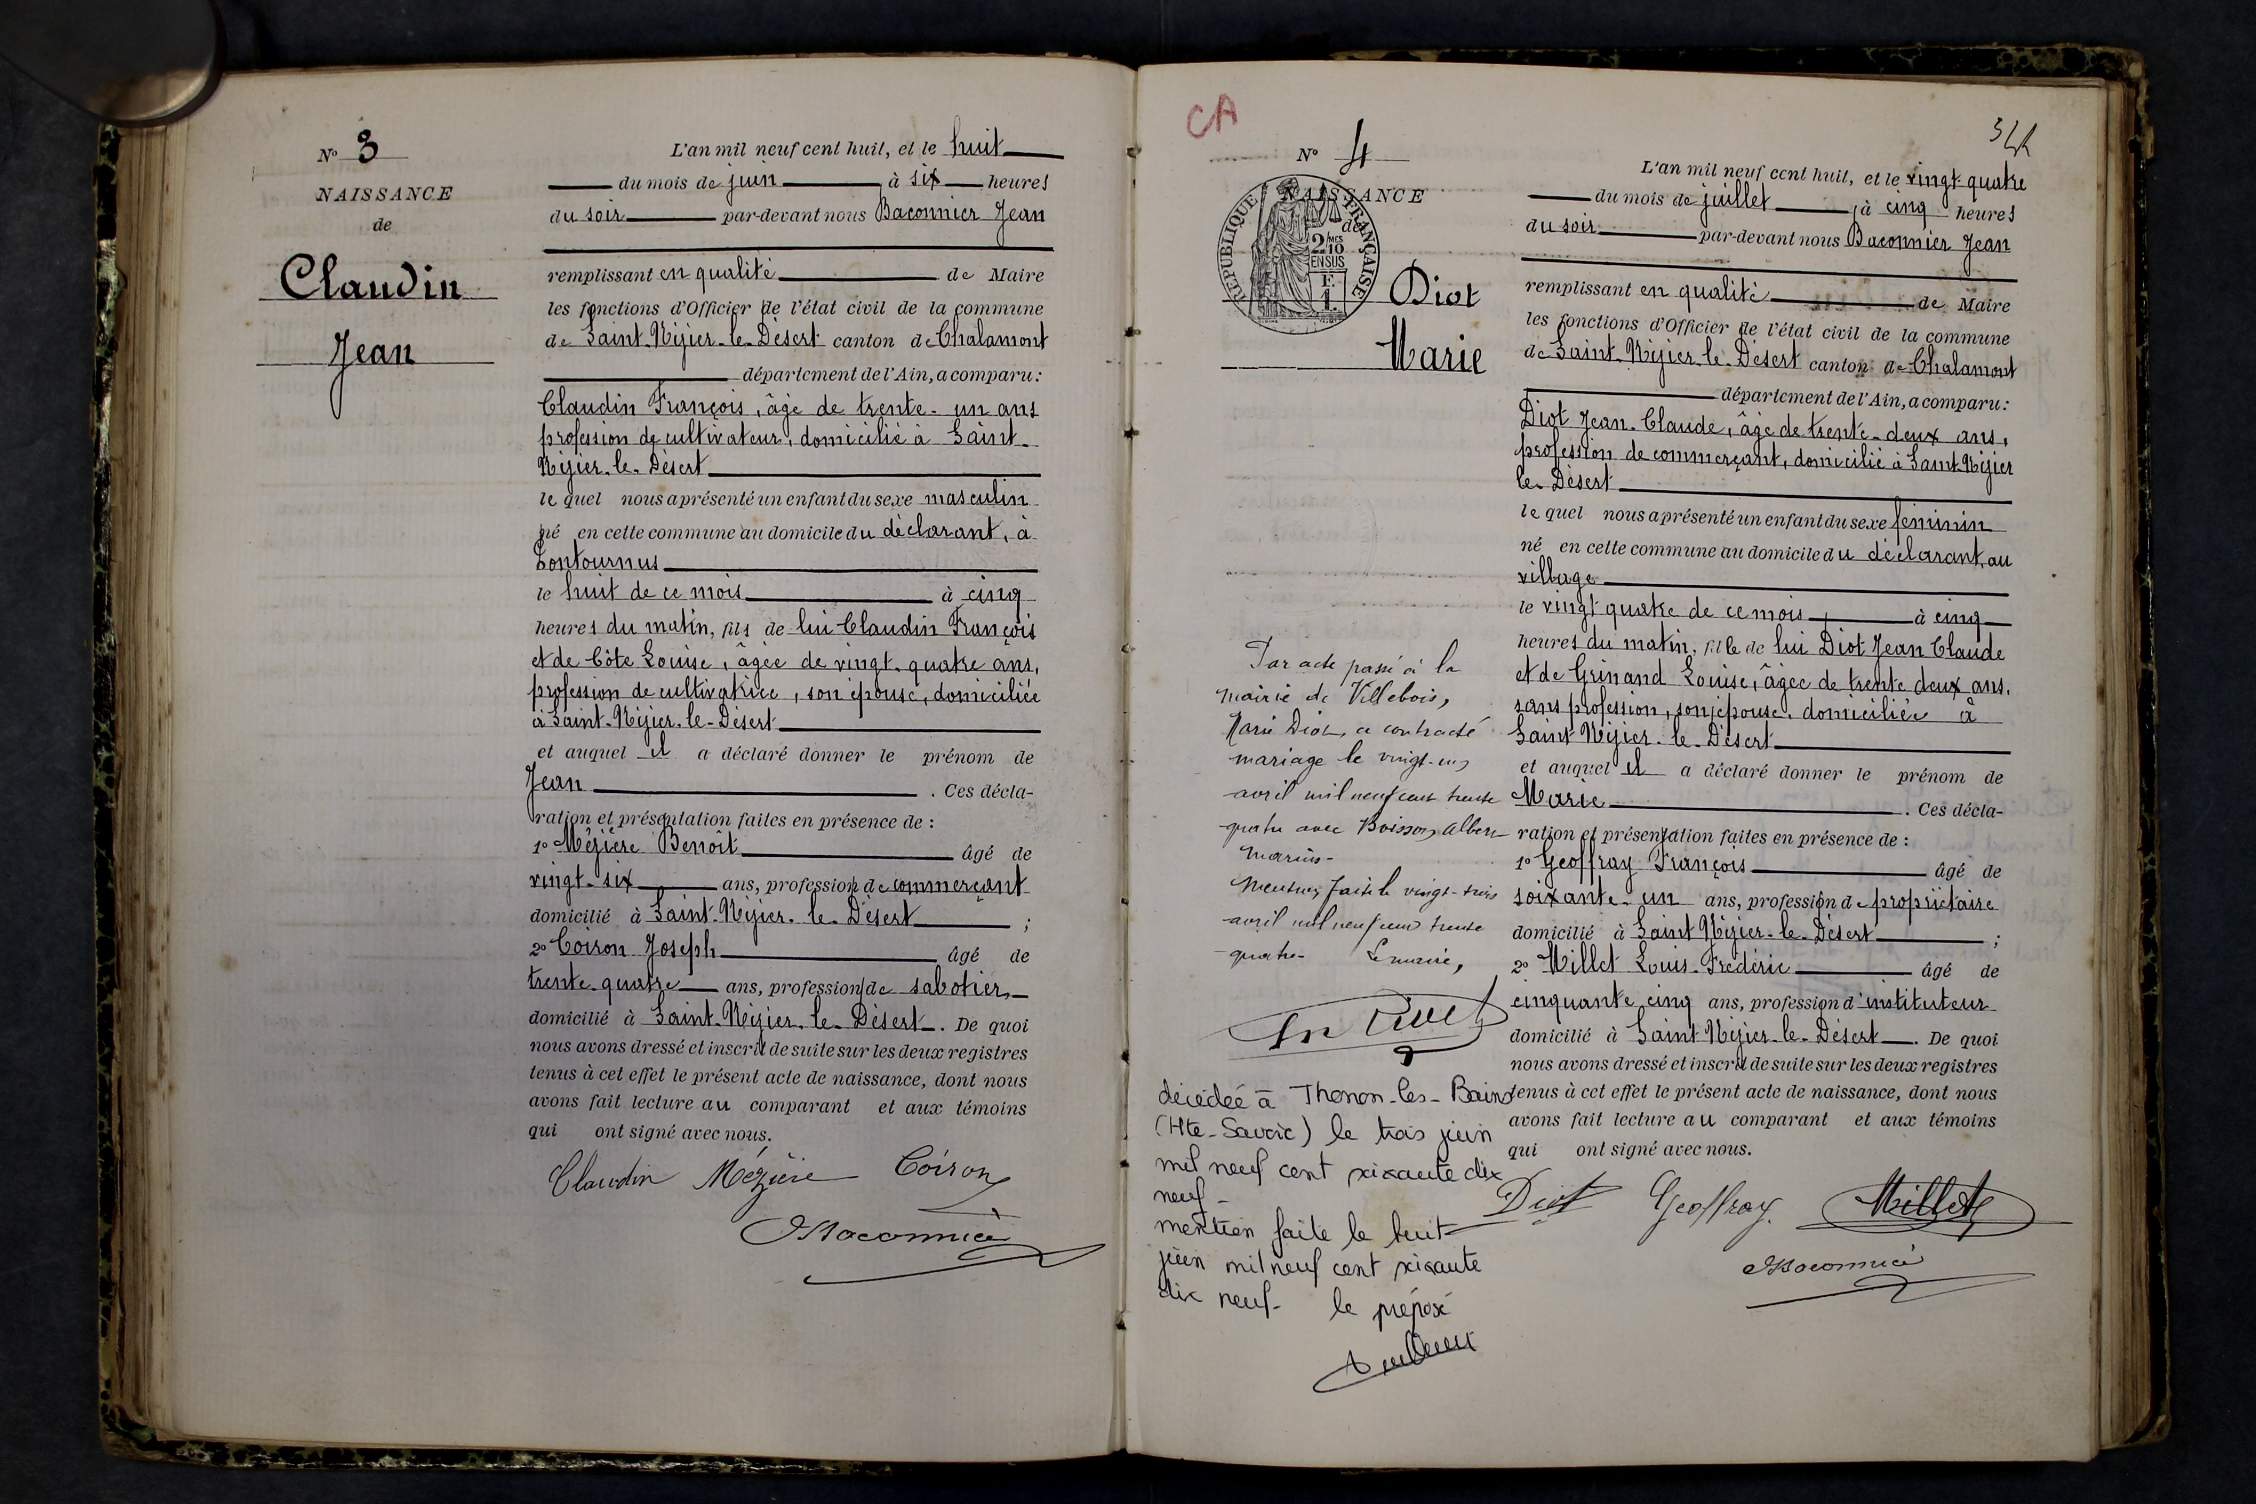 N° 3
NAISSANCE
de
Claudin
Jean
L'an mil neuf cent huit, et le huit
du mois de juin, à six heures
du soir par-devant nous Baconnier Jean
remplissant en qualité de Maire
les fonctions d'Officier de l'état civil de la commune
de Saint-Nizier-le-Désert canton de Chalamont
département de l'Ain, a comparu:
Claudin François, âgé de trente-un ans
profession de cultivateur, domicilié à Saint-
Nizier-le-Désert
le quel nous a présenté un enfant du sexe masculin
né en cette commune au domicile du déclarant, à
Lontournus
le huit de ce mois à cinq
heures du matin, fils de lui Claudin François
et de Côte Louise, âgée de vingt-quatre ans,
profession de cultivatrice, son épouse, domiciliée
à Saint-Nizier-le-Désert
et auquel il a déclaré donner le prénom de
Jean. Ces décla-
ration et présentation faites en présence de :
1° Mézière Benoît âgé de
vingt-six ans, profession de commerçant
domicilié à Saint-Nizier-le-Désert ;
2° Coiron Joseph âgé de
trente-quatre ans, profession de sabotier,
domicilié à Saint-Nizier-le-Désert. De quoi
nous avons dressé et inscrit de suite sur les deux registres
tenus à cet effet le présent acte de naissance, dont nous
avons fait lecture au comparant et aux témoins
qui ont signé avec nous.
Claudin Mézière Coiron
Baconnier
CA
34
N° 4
NAISSANCE
de
RÉPUBLIQUE FRANÇAISE
2/10 MES
EN SUS
E.
1.
Diot
Marie
L'an mil neuf cent huit, et le vingt-quatre
du mois de juillet, à cinq heures
du soir par-devant nous Baconnier Jean
remplissant en qualité de Maire
les fonctions d'Officier de l'état civil de la commune
de Saint-Nizier-le-Désert canton de Chalamont
département de l'Ain, a comparu:
Diot Jean-Claude, âgé de trente-deux ans,
profession de commerçant, domicilié à Saint-Nizier
le-Désert
le quel nous a présenté un enfant du sexe féminin
né en cette commune au domicile du déclarant, au
village
le vingt quatre de ce mois, à cinq
heures du matin, fille de lui Diot Jean Claude
et de Grinand Louise, âgée de trente deux ans,
sans profession, son épouse, domiciliée à
Saint-Nizier-le-Désert
et auquel il a déclaré donner le prénom de
Marie. Ces décla-
ration et présentation faites en présence de :
1° Geoffray François âgé de
soixante-un ans, profession de propriétaire
domicilié à Saint Nizier-le-Désert ;
2° Millet Louis-Frédéric âgé de
cinquante cinq ans, profession d'instituteur
domicilié à Saint Nizier-le-Désert. De quoi
nous avons dressé et inscrit de suite sur les deux registres
tenus à cet effet le présent acte de naissance, dont nous
avons fait lecture au comparant et aux témoins
qui ont signé avec nous.
Diot Geoffray. Millet
Baconnier
Par acte passé à la
mairie de Villebois,
Marie Diot, a contracté
mariage le vingt-un
avril mil neuf cent trente
quatre avec Boisson Albert
Marius-
Mention faite le vingt-trois
avril mil neuf cent trente
quatre- Le maire,
décédée à Thonon-les-Bains
(Hte-Savoie) le trois juin
mil neuf cent soixante dix
neuf-
mention faite le huit
juin mil neuf cent soixante
dix neuf- le préposé